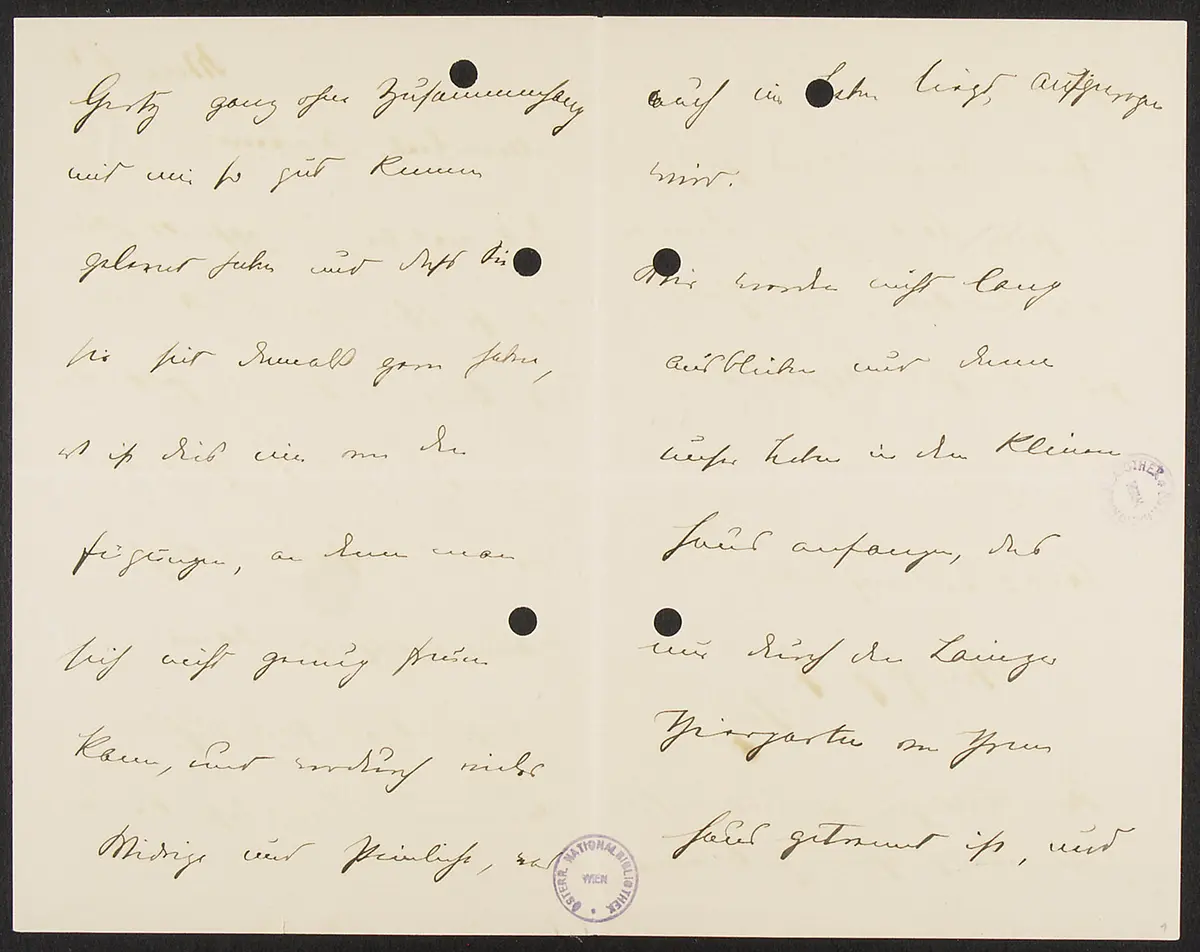 Gerty ganz ohne Zusammenhang
mit mir so gut kennen
gelernt haben und dass Sie
sie seit damals gern haben,
es ist dies eine von den
Fügungen, an denen man
sich nicht genug freuen
kann, und wodurch vieles
Widrige und Peinliche, was
auch im Leben liegt, aufgewogen
wird.
Wir werden nicht lang
ausbleiben und dann
unser Leben in dem kleinen
Haus anfangen, das
nur durch den Lainzer
Thiergarten von Ihrem
Haus getrennt ist, und
ÖSTERR. NATIONALBIBLIOTHEK
WIEN